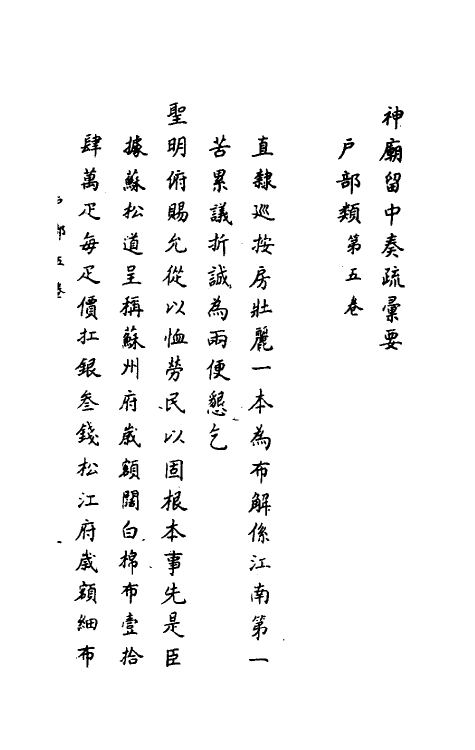 神廟留中奏疏彙要
戶部類第五卷
直隸巡按房壯麗一本為布解係江南第一
苦累議折誠為兩便懇乞
聖明俯賜允從以恤勞民以固根本事先是臣
據蘇松道呈稱蘇州府歲額闊白棉布壹拾
肆萬疋每疋價扛銀叄錢松江府歲額細布
部五卷